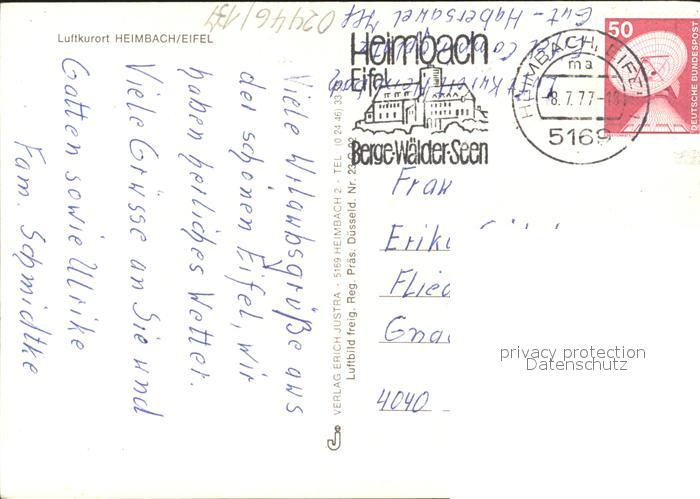 Luftkurort HEIMBACH/EIFEL
02446/137
Viele Urlaubsgrüße aus
der schönen Eifel, wir
haben herliches Wetter.
Viele Grüsse an Sie und
Gatten sowie Ulrike
Fam. Schmidtke
VERLAG ERICH JUSTRA - 5169 HEIMBACH 2 - TEL. (0 24 46) 33
Luftbild freig. Reg. Präs. Düsseld. Nr.
Gut-Habersauel
Heimbach
Eifel
Berge-Wälder-Seen
HEIMBACH, EIFEL
ma
-8.7.77-18
5169
50
DEUTSCHE BUNDESPOST
Frau
Erik
Flied
Gna
4040
privacy protection
Datenschutz